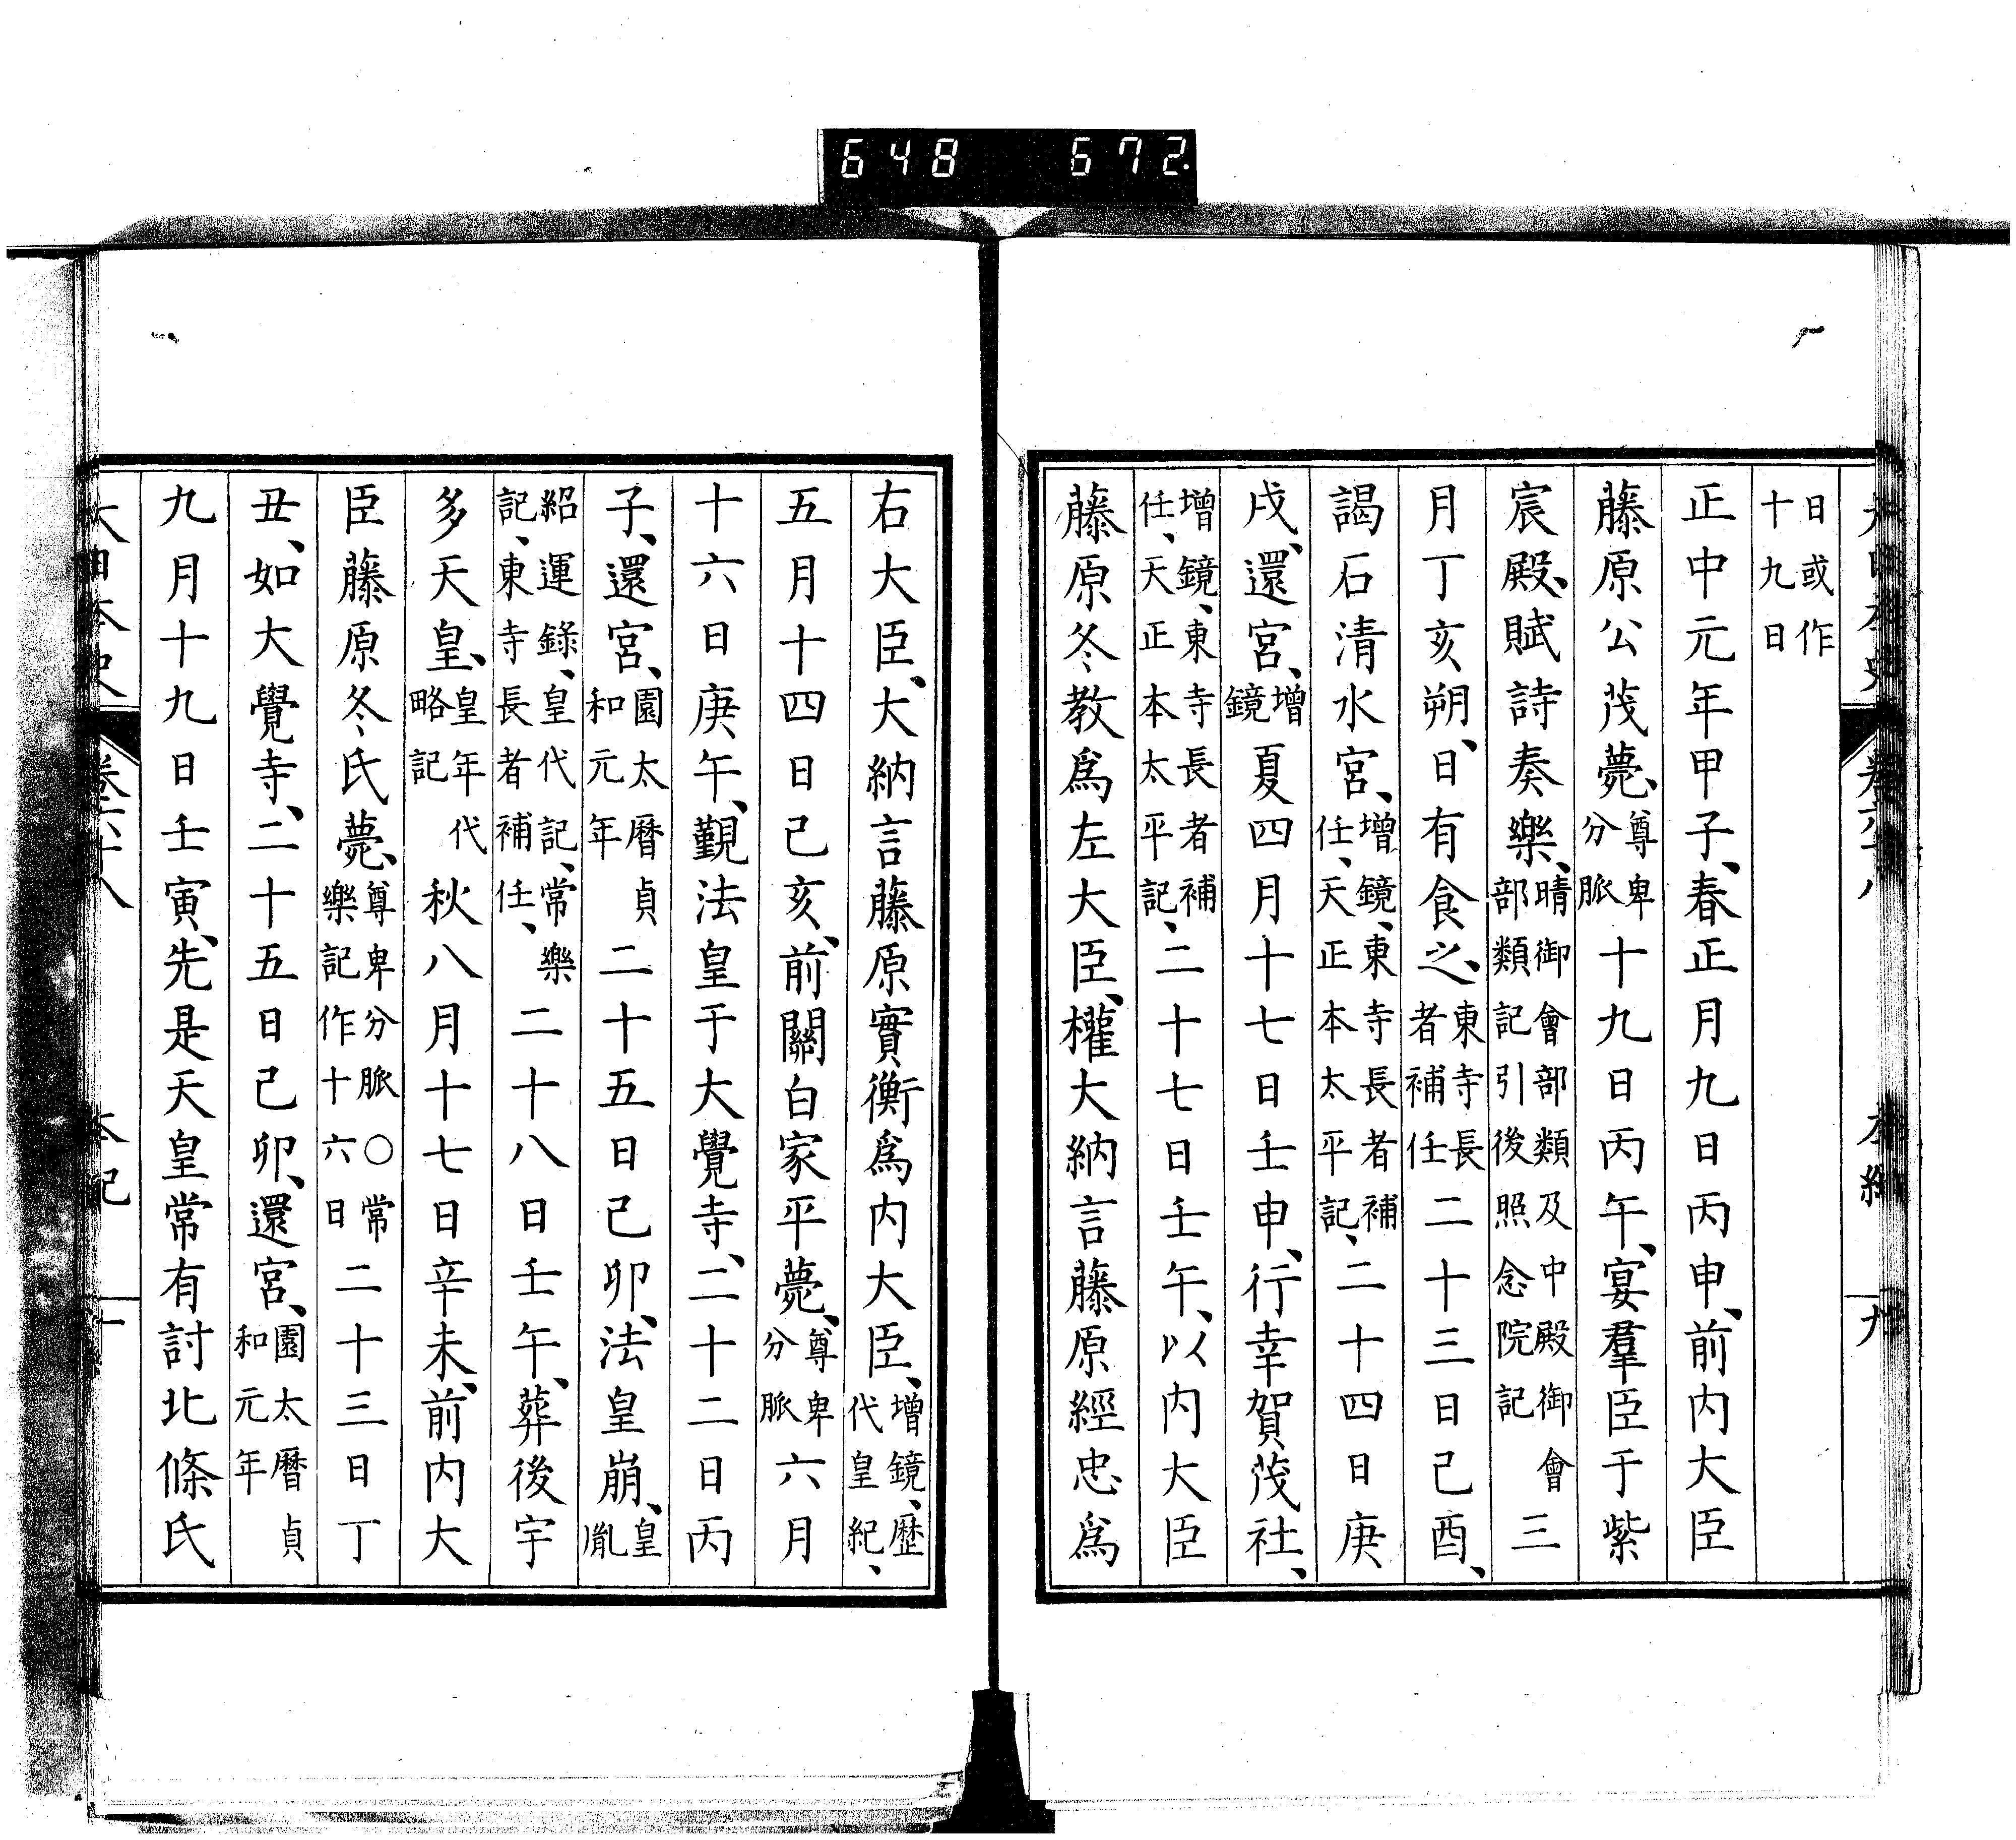 648 672
大日本史 卷六十八 本紀 九
日或作十九日
正中元年甲子、春正月九日丙申、前內大臣
藤原公茂薨、尊卑分脈十九日丙午、宴羣臣于紫
宸殿、賦詩奏樂、晴御會部類及中殿御會部類記引後照念院記三
月丁亥朔、日有食之、東寺長者補任二十三日己酉、
謁石清水宮、增鏡、東寺長者補任、天正本太平記、二十四日庚
戌、還宮、增鏡夏四月十七日壬申、行幸賀茂社、
增鏡、東寺長者補任、天正本太平記、二十七日壬午、以內大臣
藤原冬教爲左大臣、權大納言藤原經忠爲
右大臣、大納言藤原實衡爲內大臣、增鏡、歷代皇紀、
五月十四日己亥、前關白家平薨、尊卑分脈六月
十六日庚午、覲法皇于大覺寺、二十二日丙
子、還宮、園太曆貞和元年二十五日己卯、法皇崩、皇胤
紹運錄、皇代記、常樂記、東寺長者補任、二十八日壬午、葬後宇
多天皇、皇年代略記秋八月十七日辛未、前內大
臣藤原冬氏薨、尊卑分脈〇常樂記作十六日二十三日丁
丑、如大覺寺、二十五日己卯、還宮、園太曆貞和元年
九月十九日壬寅、先是天皇常有討北條氏
大日本史 卷六十八 本紀